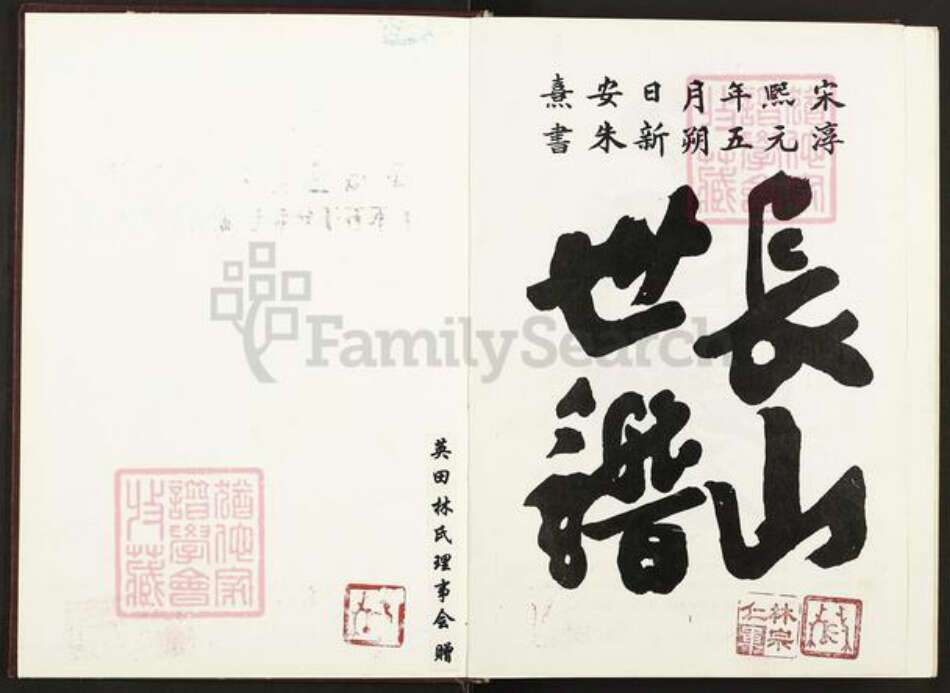 宋淳
熙元
年五
月朔
日新
安朱
熹書
長山
世譜
林宗
仁軍
英田林氏理事会贈
猶他家
譜學會
收藏
猶他家
譜學會
收藏
FamilySearch